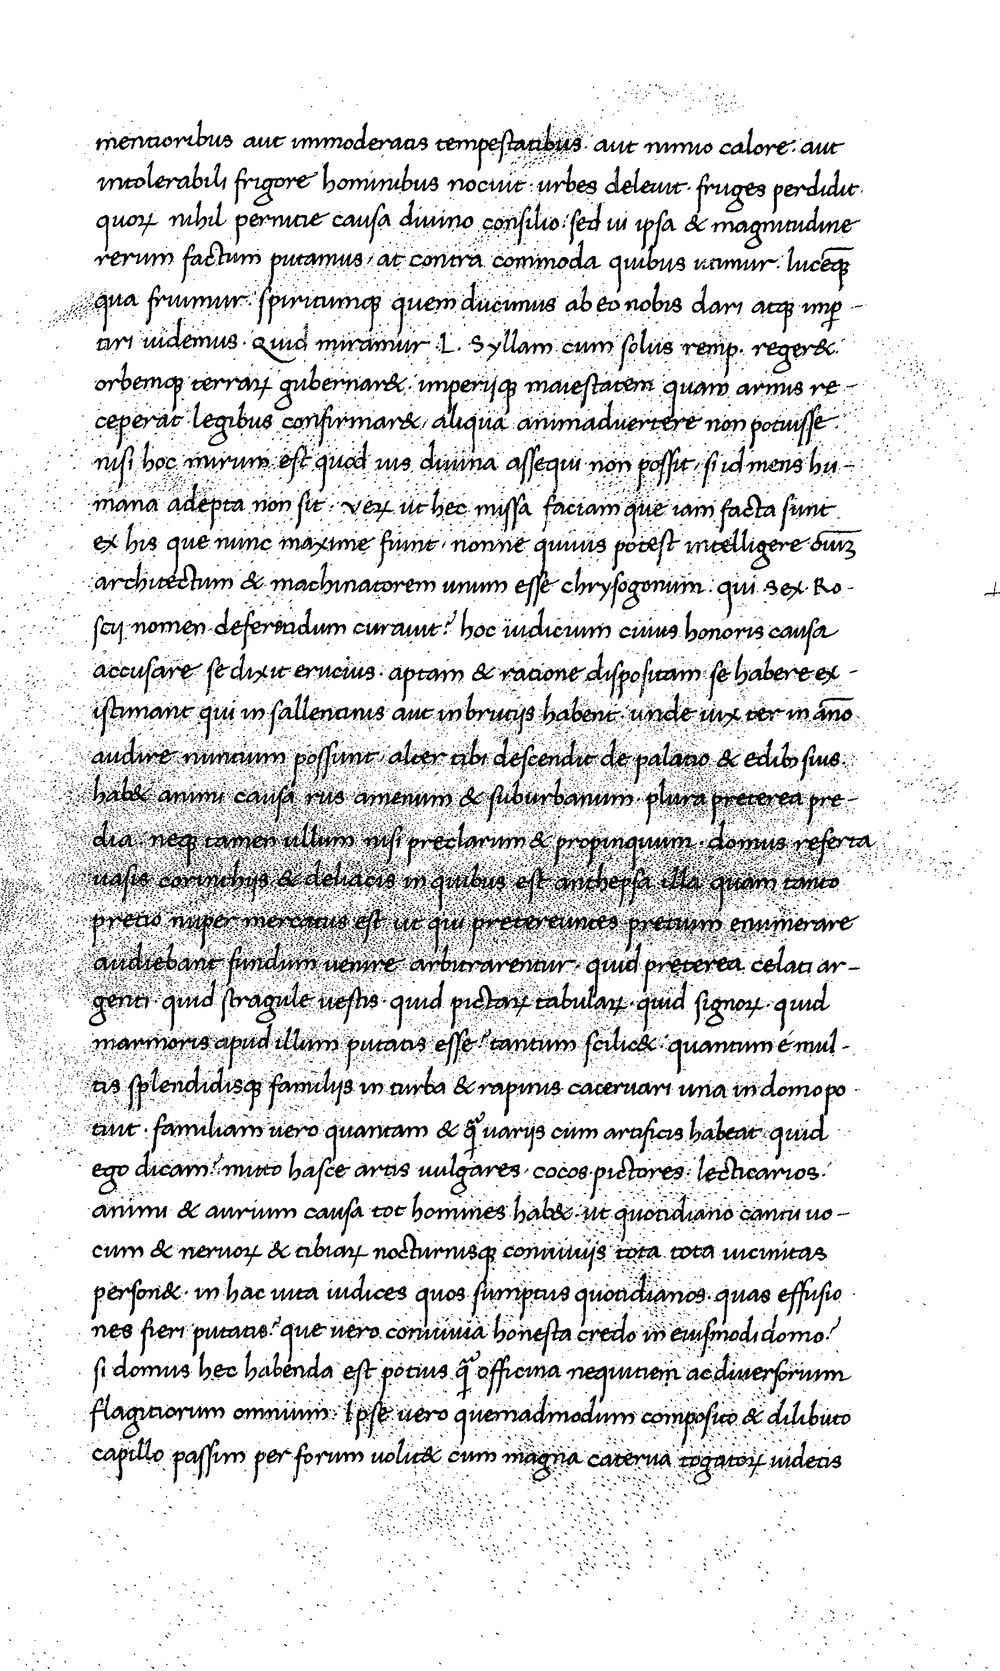 mentioribus aut immoderatis tempestatibus· aut nimio calore· aut
intolerabili frigore hominibus nocuit· urbes deleuit· fruges perdidit·
quoꝝ nihil pernitie causa diuino consilio: sed ui ipsa & magnitudine
rerum factum putamus, at contra commoda quibus utimur· lucēqꝫ
qua fruimur· spiritumqꝫ quem ducimus ab eo nobis dari atqꝫ imꝑ-
tiri uidemus· Quid miramur ·L· Syllam cum solus remp· reger&·
orbemqꝫ terraꝝ gubernar&· imperijqꝫ maiestatem quam armis re-
ceperat legibus confirmar&, aliqua animaduertere non potuisse·
nisi hoc mirum est quod uis diuina assequi non possit, si id mens hu-
mana adepta non sit· veꝝ ut hec missa faciam que iam facta sunt
ex his que nunc maxime fiunt· nonne quiuis potest intelligere om̄iū
architectum & machinatorem unum esse chrysogonum· qui Sex· Ro-
scij nomen deferendum curauit? hoc iudicium cuius honoris causa
accusare se dixit erucius· aptam & ratione dispositam se habere ex-
istimant qui in sallentinis aut in brutijs habent· unde uix ter in āno
audire nuntium possunt, alter tibi descendit de palatio & edibꝫ suis·
hab& animi causa rus amenum & suburbanum· plura preterea pre-
dia· neqꝫ tamen ullum nisi preclarum & propinquum· domus referta
uasis corinthijs & deliacis in quibus est anthepsa illa quam tanto
precio nuper mercatus est ut qui pretereuntes pretium enumerare
audiebant fundum uenire arbitrarentur· quid preterea celati ar-
genti· quid stragule uestis· quid pictaꝝ tabulaꝝ· quid signoꝝ· quid
marmoris apud illum putatis esse? tantum scilic& quantum é mul-
tis splendidisqꝫ familijs in turba & rapinis coaceruari una in domo po
tuit· familiam uero quantam & q̃ uarijs cum artificis habeat quid
ego dicam? mitto hasce artis uulgares· cocos· pictores· lecticarios·
animi & aurium causa tot homines hab&· ut quotidiano cantu uo-
cum & neruoꝝ & tibiaꝝ nocturnisqꝫ conuiuijs tota tota uicinitas
person&· in hac uita iudices quos sumptus quotidianos· quas effusio
nes fieri putatis? que uero conuiuia honesta credo in eiusmodi domo?
si domus hec habenda est potius q̃ officina nequitiem ac diuersorium
flagitiorum omnium· Ipse uero quemadmodum composito & dilibuto
capillo passim per forum uolit& cum magna caterua togatoꝝ uidetis